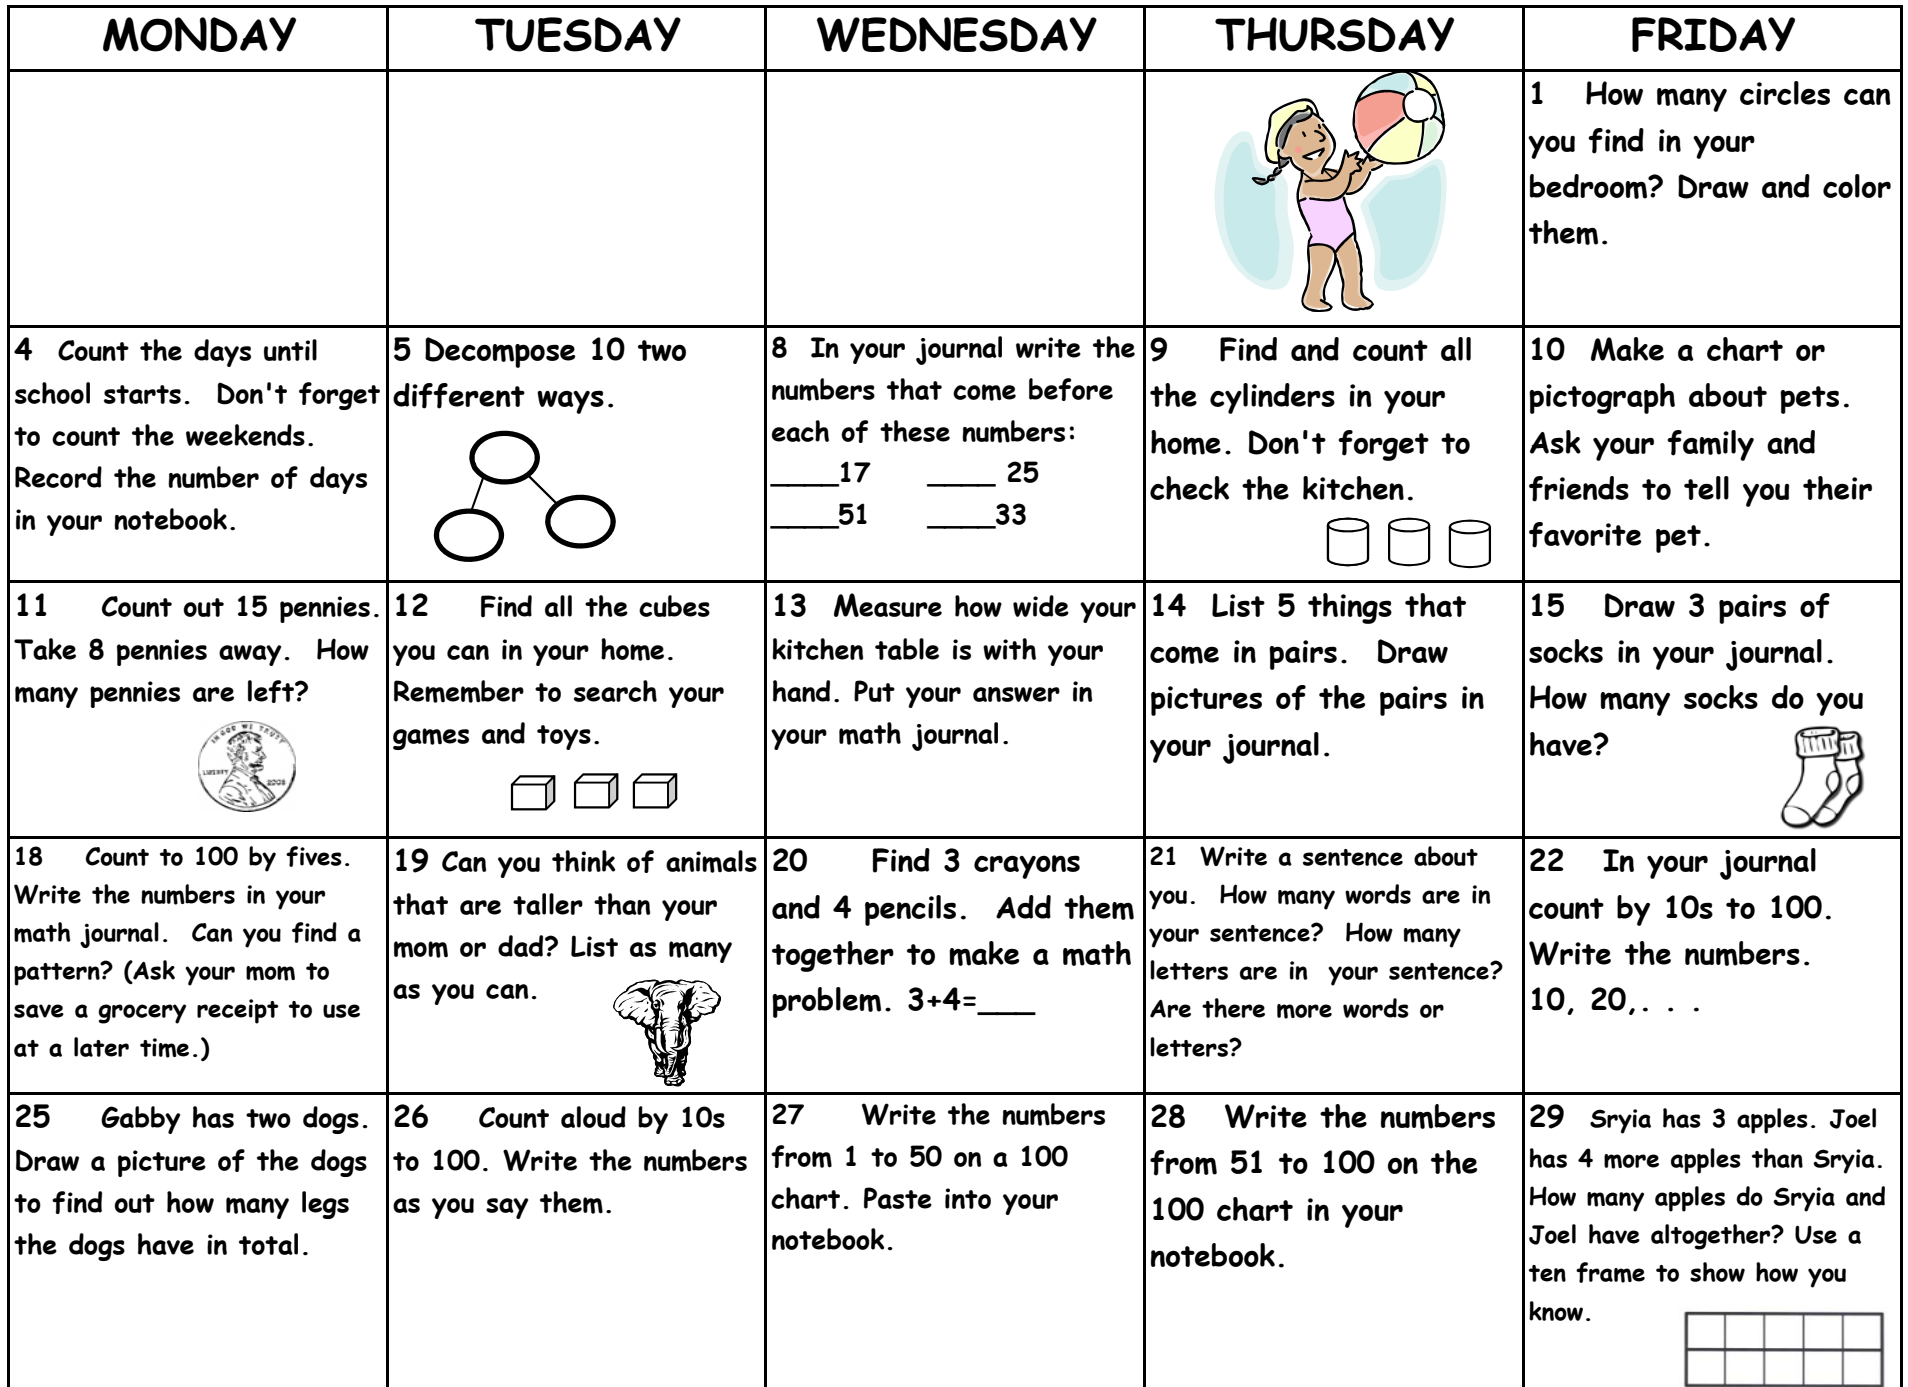 MONDAY TUESDAY WEDNESDAY THURSDAY FRIDAY
1 How many circles can
you find in your
bedroom? Draw and color
them.
4 Count the days until
school starts. Don't forget
to count the weekends.
Record the number of days
in your notebook.
5 Decompose 10 two
different ways.
8 In your journal write the
numbers that come before
each of these numbers:
____17 ____ 25
____51 ____33
9 Find and count all
the cylinders in your
home. Don't forget to
check the kitchen.
10 Make a chart or
pictograph about pets.
Ask your family and
friends to tell you their
favorite pet.
11 Count out 15 pennies.
Take 8 pennies away. How
many pennies are left?
IN GOD WE TRUST
LIBERTY
2008
12 Find all the cubes
you can in your home.
Remember to search your
games and toys.
13 Measure how wide your
kitchen table is with your
hand. Put your answer in
your math journal.
14 List 5 things that
come in pairs. Draw
pictures of the pairs in
your journal.
15 Draw 3 pairs of
socks in your journal.
How many socks do you
have?
18 Count to 100 by fives.
Write the numbers in your
math journal. Can you find a
pattern? (Ask your mom to
save a grocery receipt to use
at a later time.)
19 Can you think of animals
that are taller than your
mom or dad? List as many
as you can.
20 Find 3 crayons
and 4 pencils. Add them
together to make a math
problem. 3+4=___
21 Write a sentence about
you. How many words are in
your sentence? How many
letters are in your sentence?
Are there more words or
letters?
22 In your journal
count by 10s to 100.
Write the numbers.
10, 20,. . .
25 Gabby has two dogs.
Draw a picture of the dogs
to find out how many legs
the dogs have in total.
26 Count aloud by 10s
to 100. Write the numbers
as you say them.
27 Write the numbers
from 1 to 50 on a 100
chart. Paste into your
notebook.
28 Write the numbers
from 51 to 100 on the
100 chart in your
notebook.
29 Sryia has 3 apples. Joel
has 4 more apples than Sryia.
How many apples do Sryia and
Joel have altogether? Use a
ten frame to show how you
know.